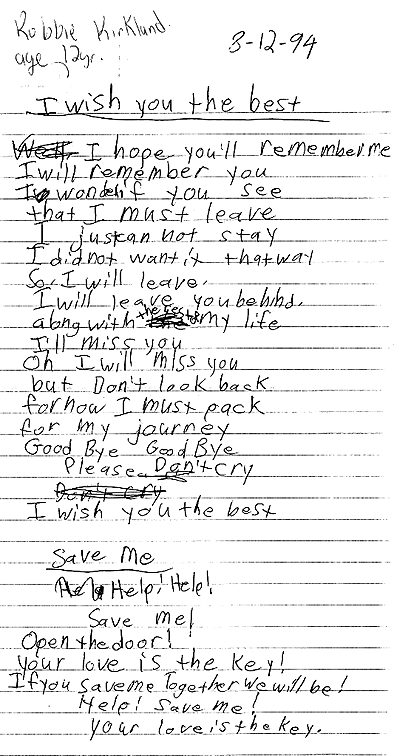 Robbie Kirkland.
age 12yr.
3-12-94
I wish you the best
Well, I hope you'll remember me
I will remember you
I wonder if you see
that I must leave
I just can not stay
I did not want it that way
So, I will leave.
I will leave you behind.
along with the rest of my life
I'll miss you
Oh I will miss you
but Don't look back
for now I must pack
for my journey
Good Bye Good Bye
Please Don't cry
Don't cry
I wish you the best
Save Me
Help! Help!
Save me!
Open the door!
Your love is the key!
If you save me Together we will be!
Help! Save me!
Your love is the key.